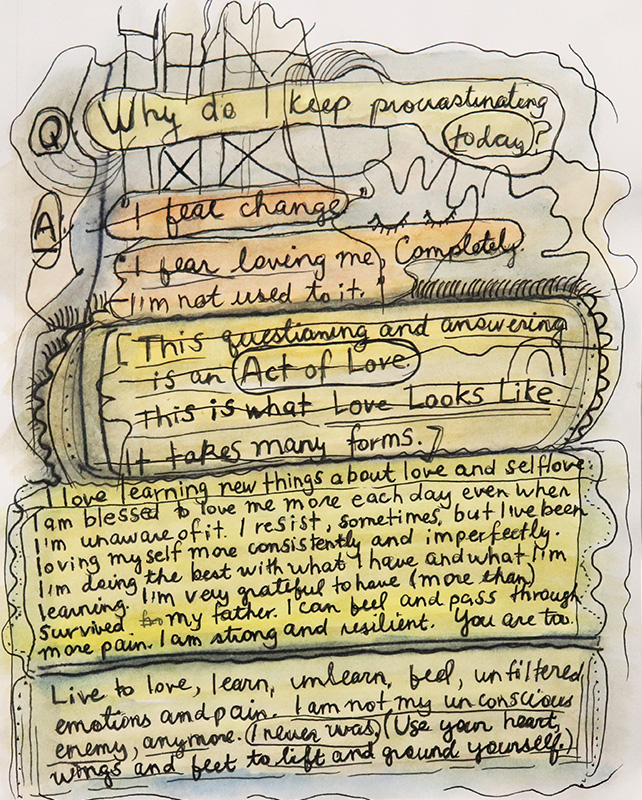 Q Why do I keep procrastinating
today?
A: "I fear change"
"I fear loving me, Completely.
I'm not used to it."
[This questioning and answering
is an Act of Love.
This is what Love Looks Like.
It takes many forms.]
I love learning new things about love and selflove.
I am blessed to love me more each day even when
I'm unaware of it. I resist, sometimes, but I've been
loving myself more consistently and imperfectly.
I'm doing the best with what I have and what I'm
learning. I'm very grateful to have (more than)
survived my father. I can feel and pass through
more pain. I am strong and resilient. You are too.
Live to love, learn, unlearn, feel, unfiltered
emotions and pain. I am not my unconscious
enemy, anymore. I never was. (Use your heart,
wings and feet to lift and ground yourself.)